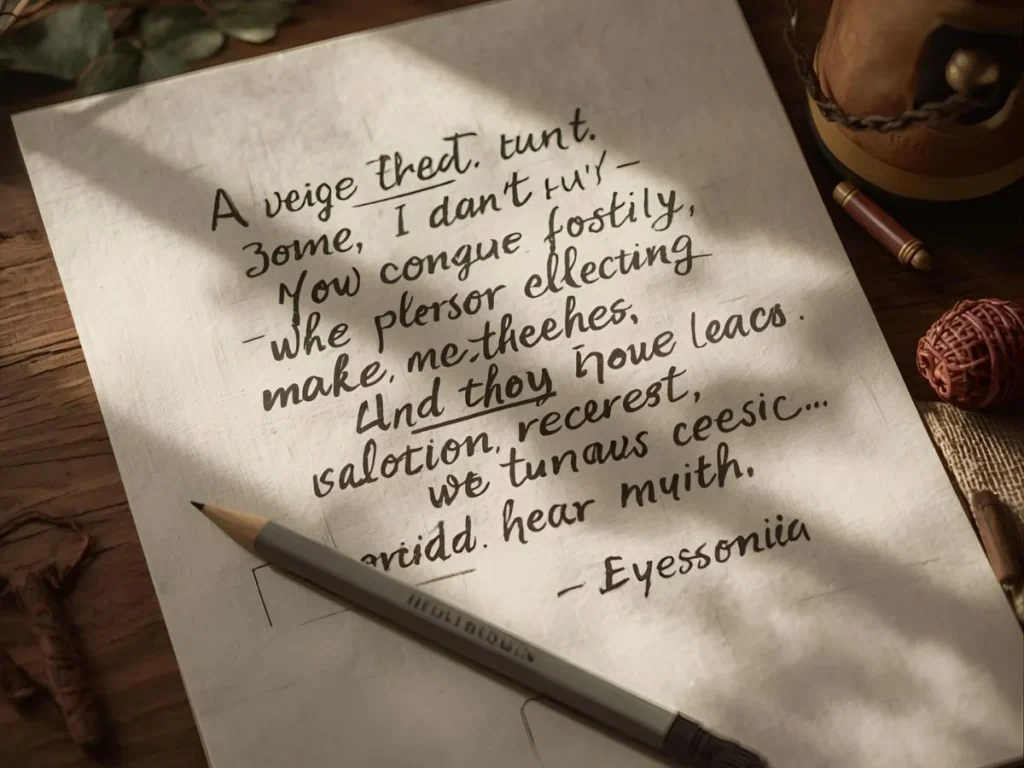 A veige thed. tunt.
3ome, I dan't
Yow congue fostily,
-whe plersor ellecting
make, me.theehes,
And thoy houe leacs.
salotion, recerest,
we tunaus ceesic...
hear myith.
- Eyessoniia